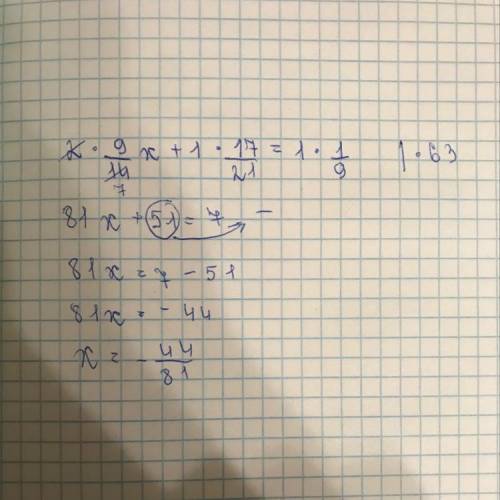 2 · 9/14 7 x + 1 · 17/21 = 1 · 1/9 | · 63
81x + 51 = 7 –
81x = 7 - 51
81x = - 44
x = - 44/81